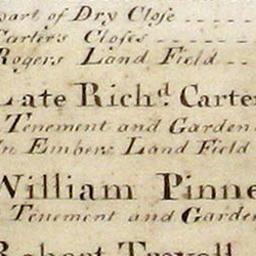 part of Dry Close
Carter's Closes
Rogers Land Field
Late Rich.d Carter
Tenement and Garden
In Embers Land Field
William Pinne
Tenement and Garden
Robert